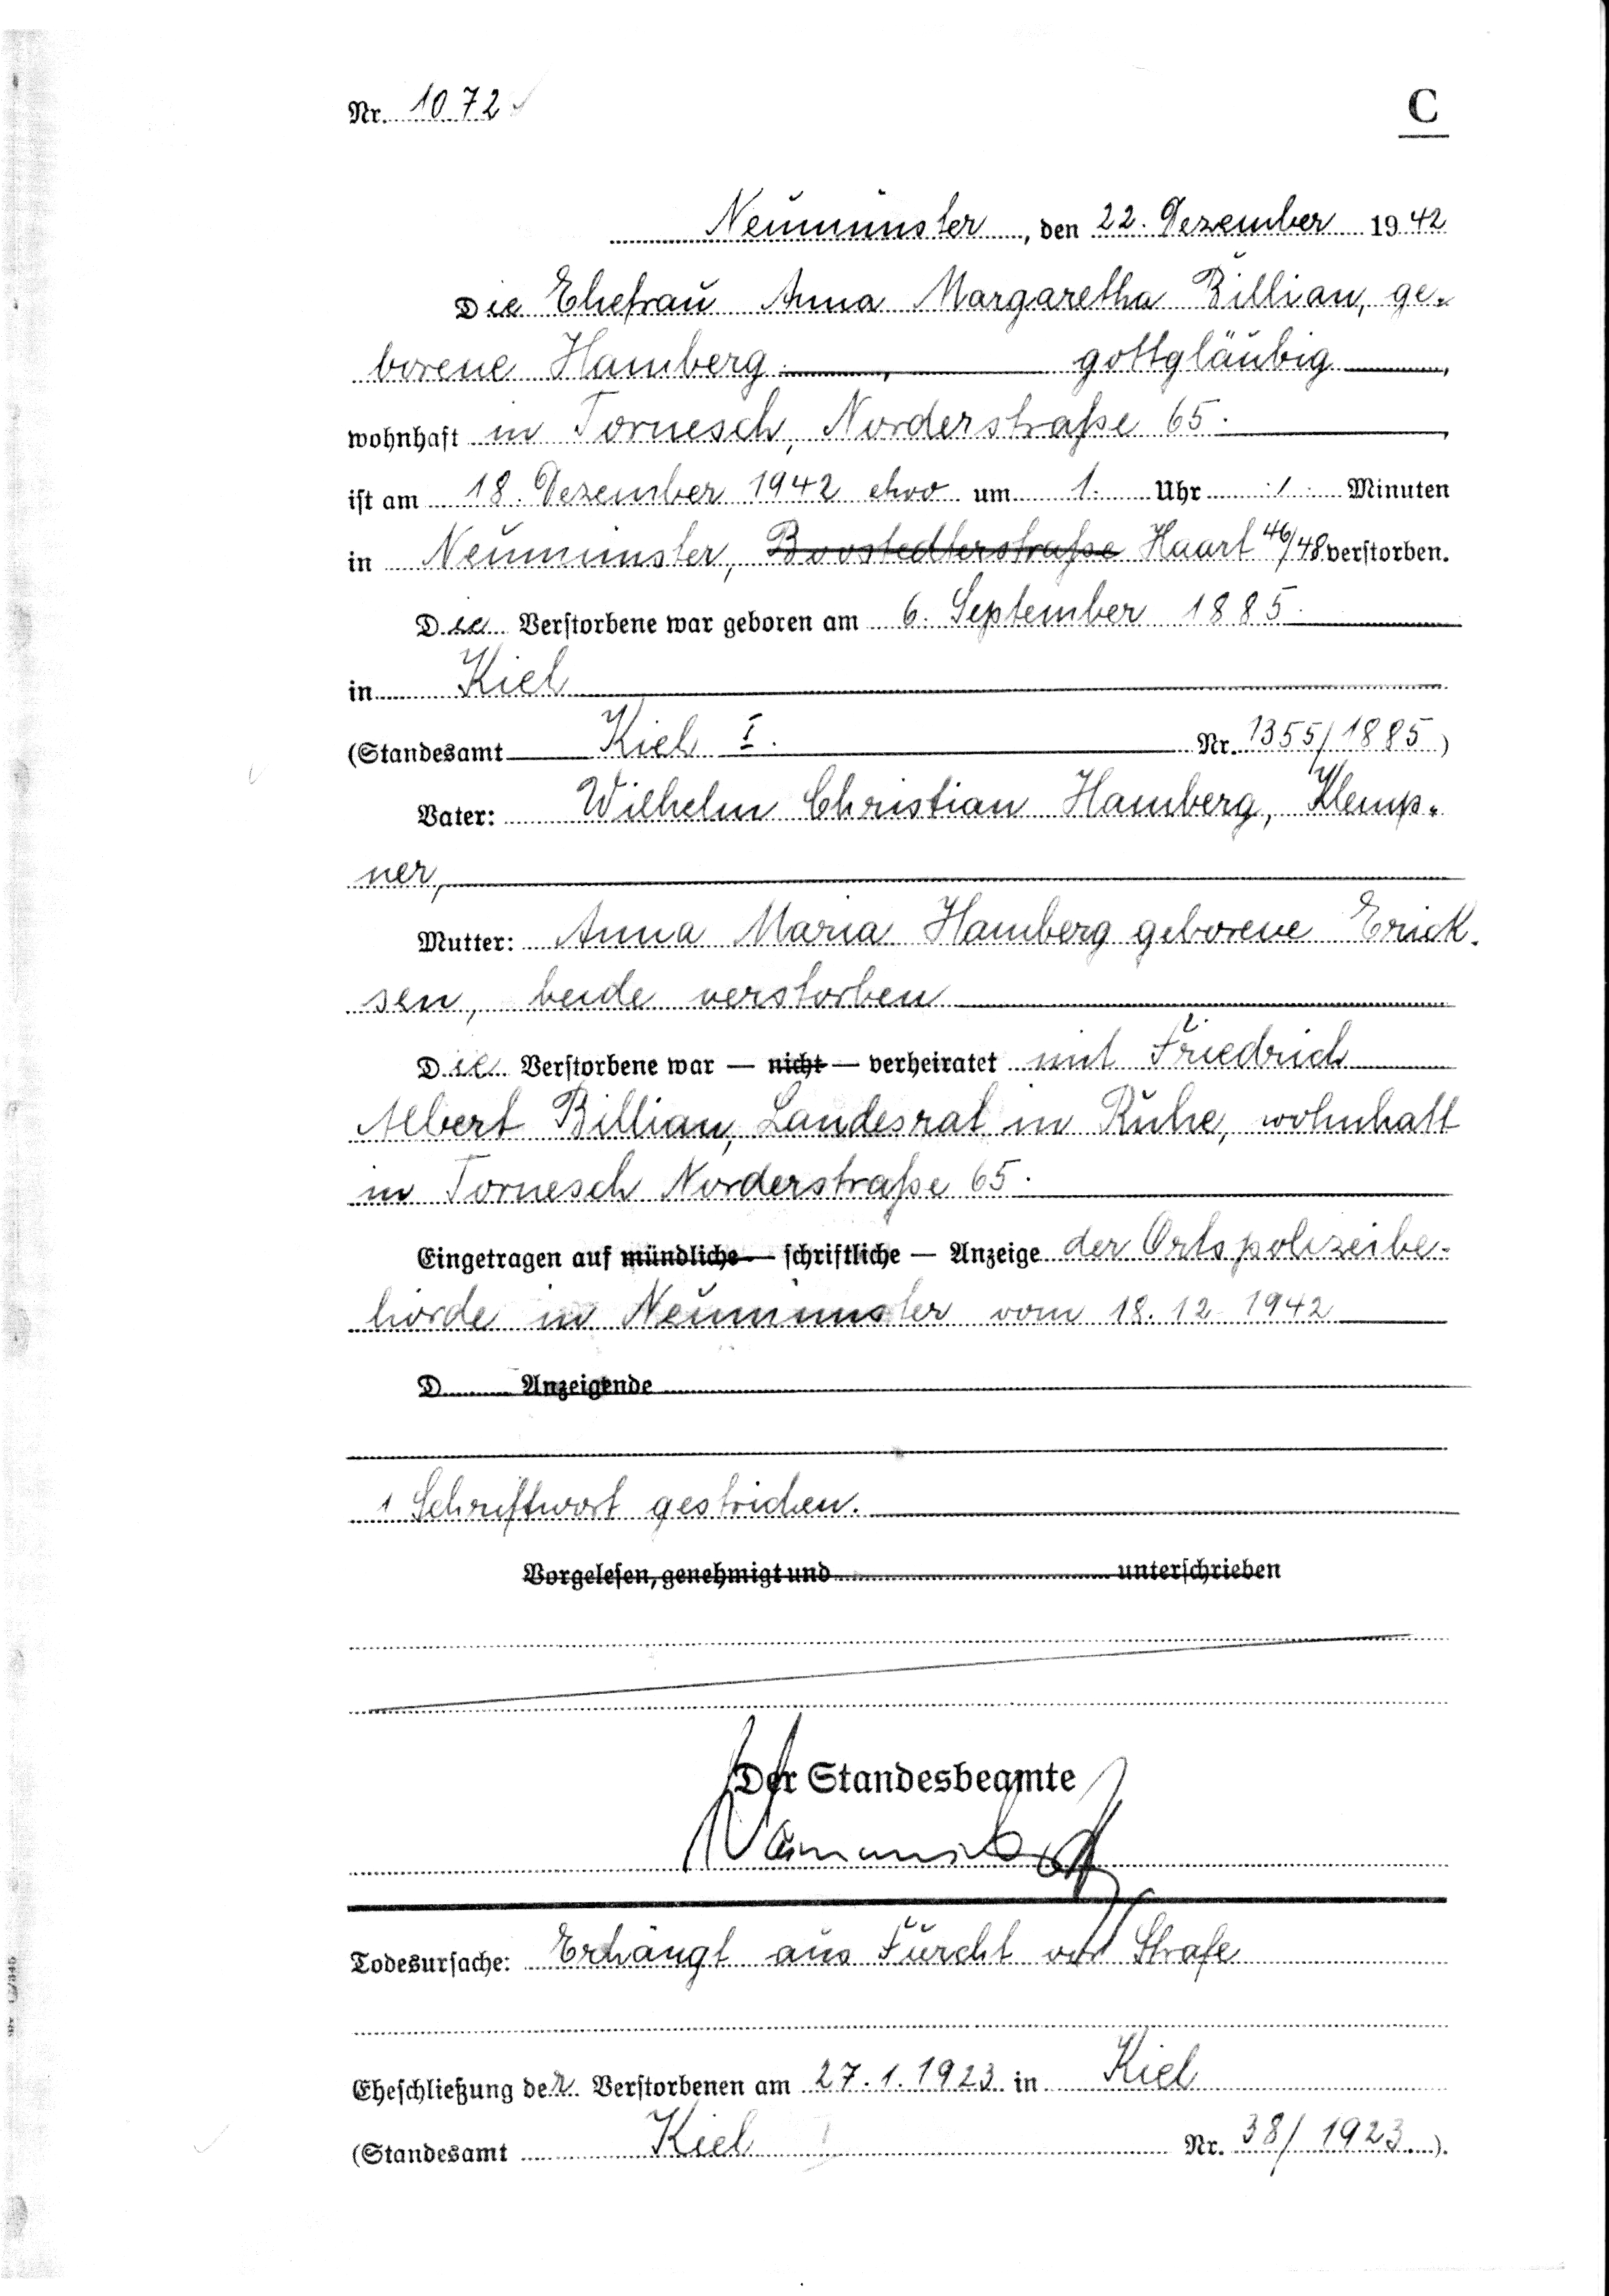 Nr. 1072
C
Neumünster, den 22. Dezember 1942
Die Ehefrau Anna Margaretha Billian, ge-
borene Hamberg, gottgläubig,
wohnhaft in Tornesch, Norderstraße 65.
ist am 18. Dezember 1942 etwa um 1. Uhr Minuten
in Neumünster, Boostedterstraße Haart 46/48 verstorben.
Die Verstorbene war geboren am 6. September 1885.
in Kiel
(Standesamt Kiel I. Nr. 1355/1885)
Vater: Wilhelm Christian Hamberg, Klemp-
ner,
Mutter: Anna Maria Hamberg geborene Erick-
sen, beide verstorben
Die Verstorbene war — nicht — verheiratet mit Friedrich
Albert Billian, Landesrat in Ruhe, wohnhaft
in Tornesch Norderstraße 65.
Eingetragen auf mündliche — schriftliche — Anzeige der Ortspolizeibe-
hörde in Neumünster vom 18.12.1942
D Anzeigende
1 Schriftwort gestrichen.
Vorgelesen, genehmigt und unterschrieben
Der Standesbeamte
Todesursache: Erhängt aus Furcht vor Strafe
Eheschließung der Verstorbenen am 27.1.1923 in Kiel
(Standesamt Kiel I Nr. 38/1923).